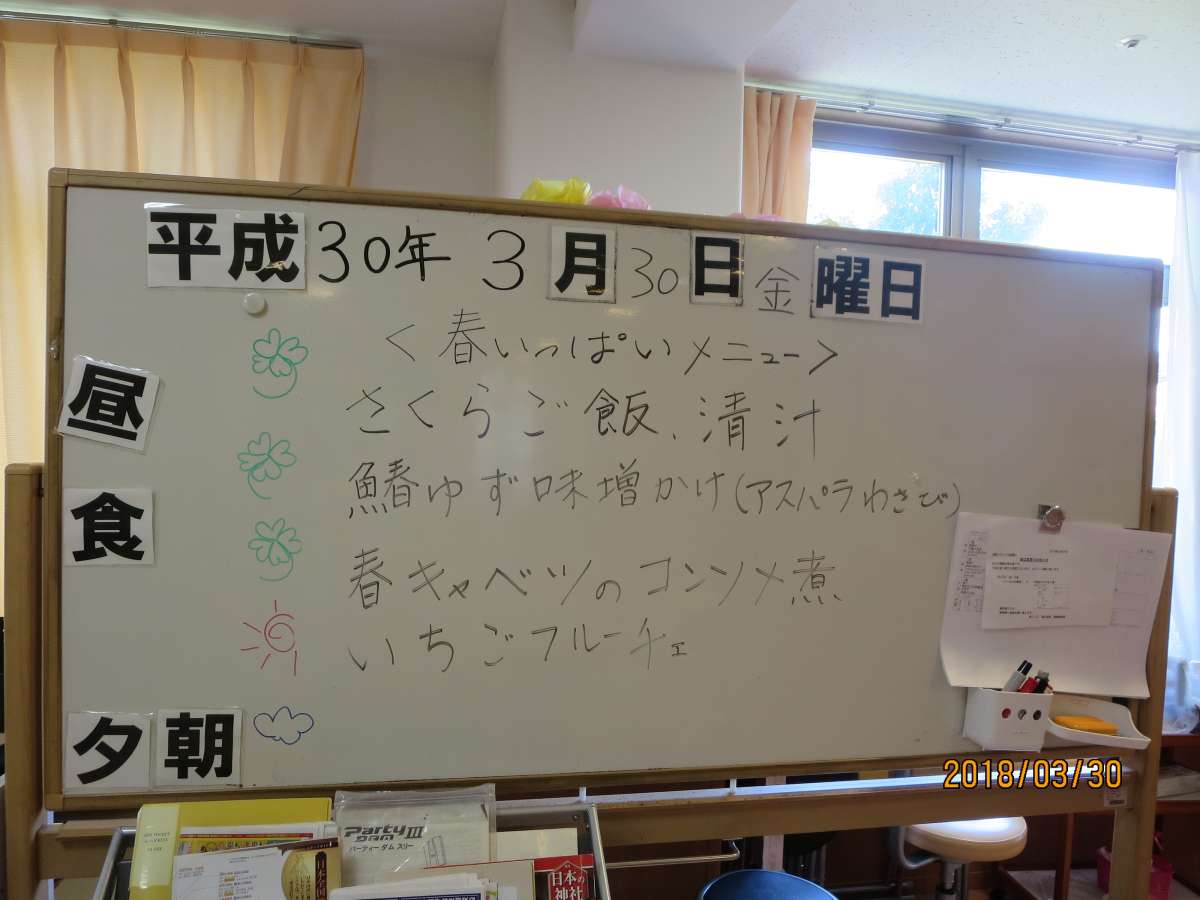 平成30年 3月30日金曜日
<春いっぱいメニュー>
昼食
さくらご飯、清汁
鰆ゆず味噌かけ(アスパラわさび)
春キャベツのコンソメ煮
いちごフルーチェ
夕朝
2018/03/30
Party DAM III
パーティー ダム スリー
日本の神社